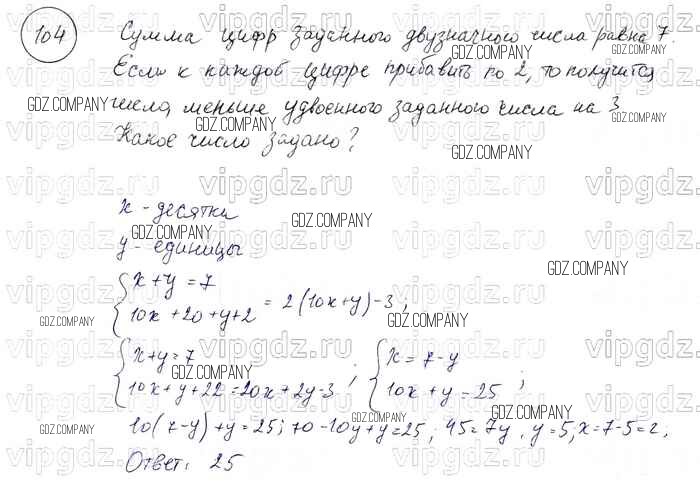 104
Сумма цифр заданного двузначного числа равна 7.
Если к каждой цифре прибавить по 2, то получится
число, меньше удвоенного заданного числа на 3.
Какое число задано?
x - десятки
y - единицы
x+y=7
10x+20+y+2 = 2(10x+y)-3;
x+y=7 ; x=7-y
10x+y+22=20x+2y-3 ; 10x+y=25 ;
10(7-y)+y=25; 70-10y+y=25; 45=7y. y=5, x=7-5=2.
Ответ: 25
GDZ.COMPANY
vipgdz.ru